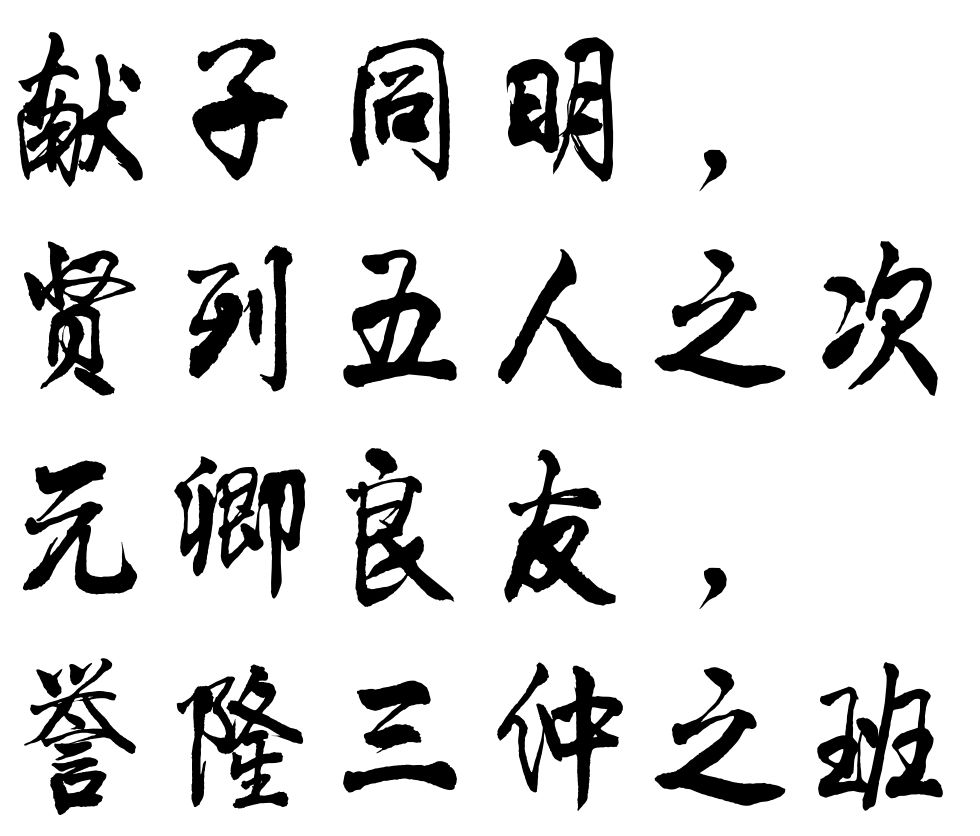 献子同明，
贤列五人之次
元卿良友，
誉隆三仲之班